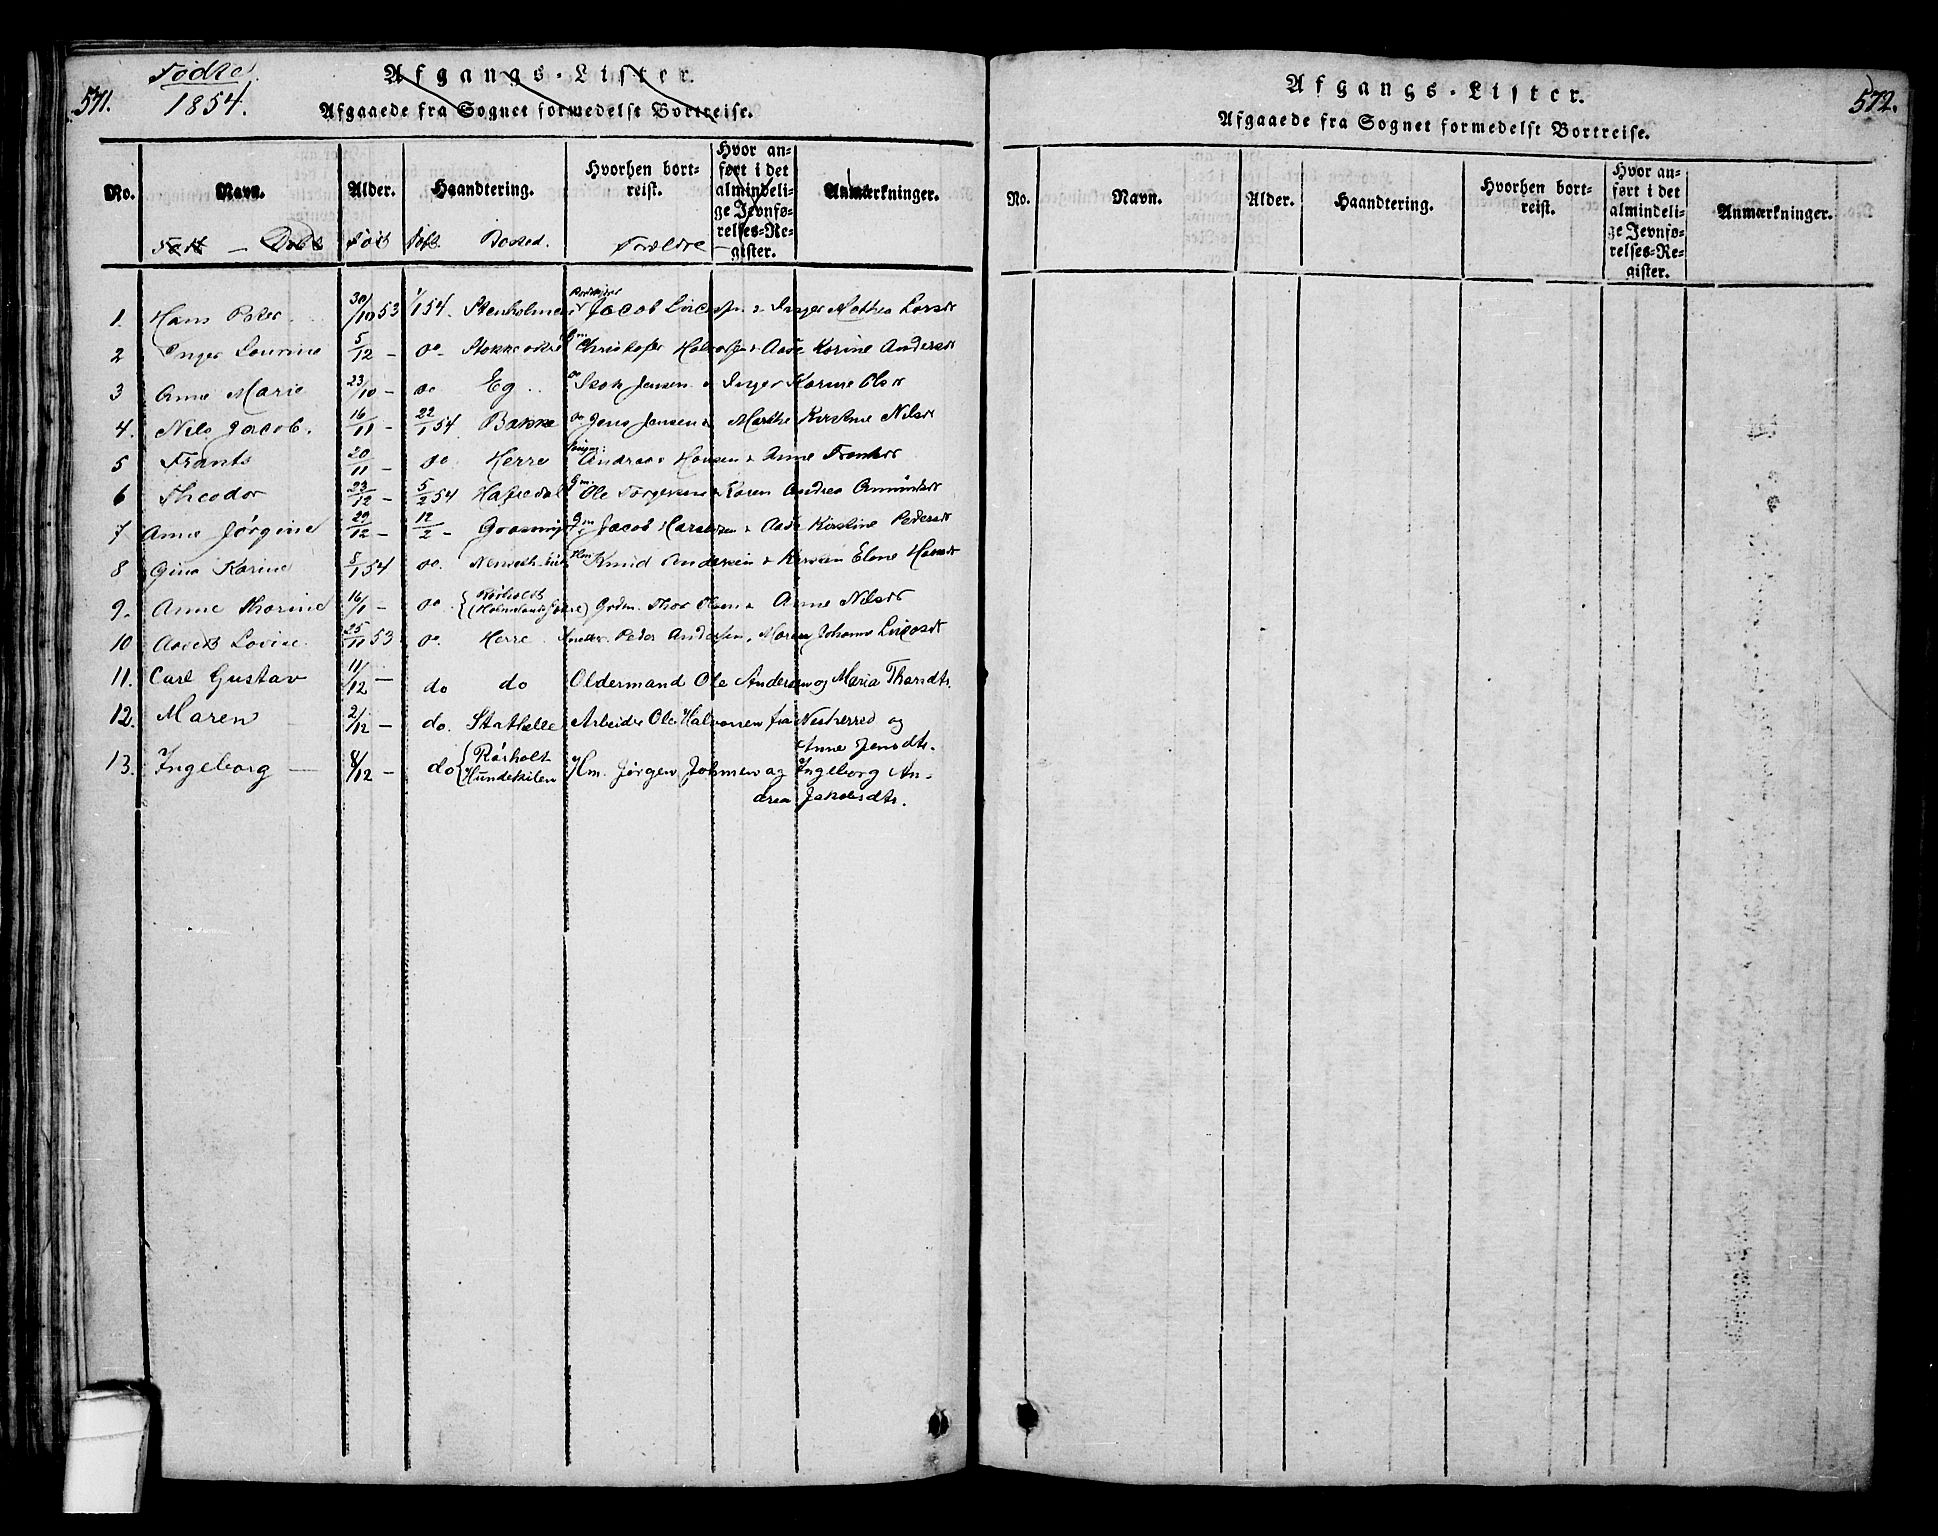 571.
Fødte
1854.
Afgangs-Lister.
Afgaaede fra Sognet formedelst Bortreise.
No. Navn. Alder. Haandtering. Hvorhen bortreist. Hvor anført i det almindelige Jevnførelses-Register. Anmærkninger.
Født Døbt Født Døbt Bosted. Forældre
1. Hans Peter 30/10 53 1/1 54. Stenholmen Jacob Inger Mathea Larsdt
2 Inger Lourine 5/12 - do - Stokkevolde Christofer Aase Karine Andersdt
3 Anne Marie 23/10 - do Eg Isak Jensen & Inger Karine Olsdt
4. Nils Jacob. 16/11 - 22/1 54 Bakke do Jens Jensen & Marthe Kirstine Nilsdt
5 Frants 20/11 - do. Herre Andreas Hansen & Anne
6 Theodor 23/12 - 5/2 54 Gm. Ole Torgersen & Karen Andrea Amundsdt
7 Anne Jørgine 29/12 - 12/2 - Gm Jacob & Aase Kirstine Pedersdt
8 Gina Karine 8/1 54 do. Hm Knud Andersen & Elene Hansdt
9. Anne Thorine 16/1 - do { Rørholdt Thor Olsen & Anne Nilsdt
10 Lovise. 25/11 53 do. Herre Peder Andersen, Maren Johanne
11. Carl Gustav 11/12 - do do Oldermand Ole Andersen og Maria Thorsdtr.
12. Maren 2/12 - do. Stathelle Arbeider Ole Halvorsen fra Nesherred og
Anne Jensdtr.
13. Ingeborg - 8/12 - do { Rørholt Hundekilen Hm. Jørgen Johnsen og Ingeborg An-
drea Jakobsdtr.
572.
Afgangs-Lister.
Afgaaede fra Sognet formedelst Bortreise.
No. Navn. Alder. Haandtering. Hvorhen bortreist. Hvor anført i det almindelige Jevnførelses-Register. Anmærkninger.